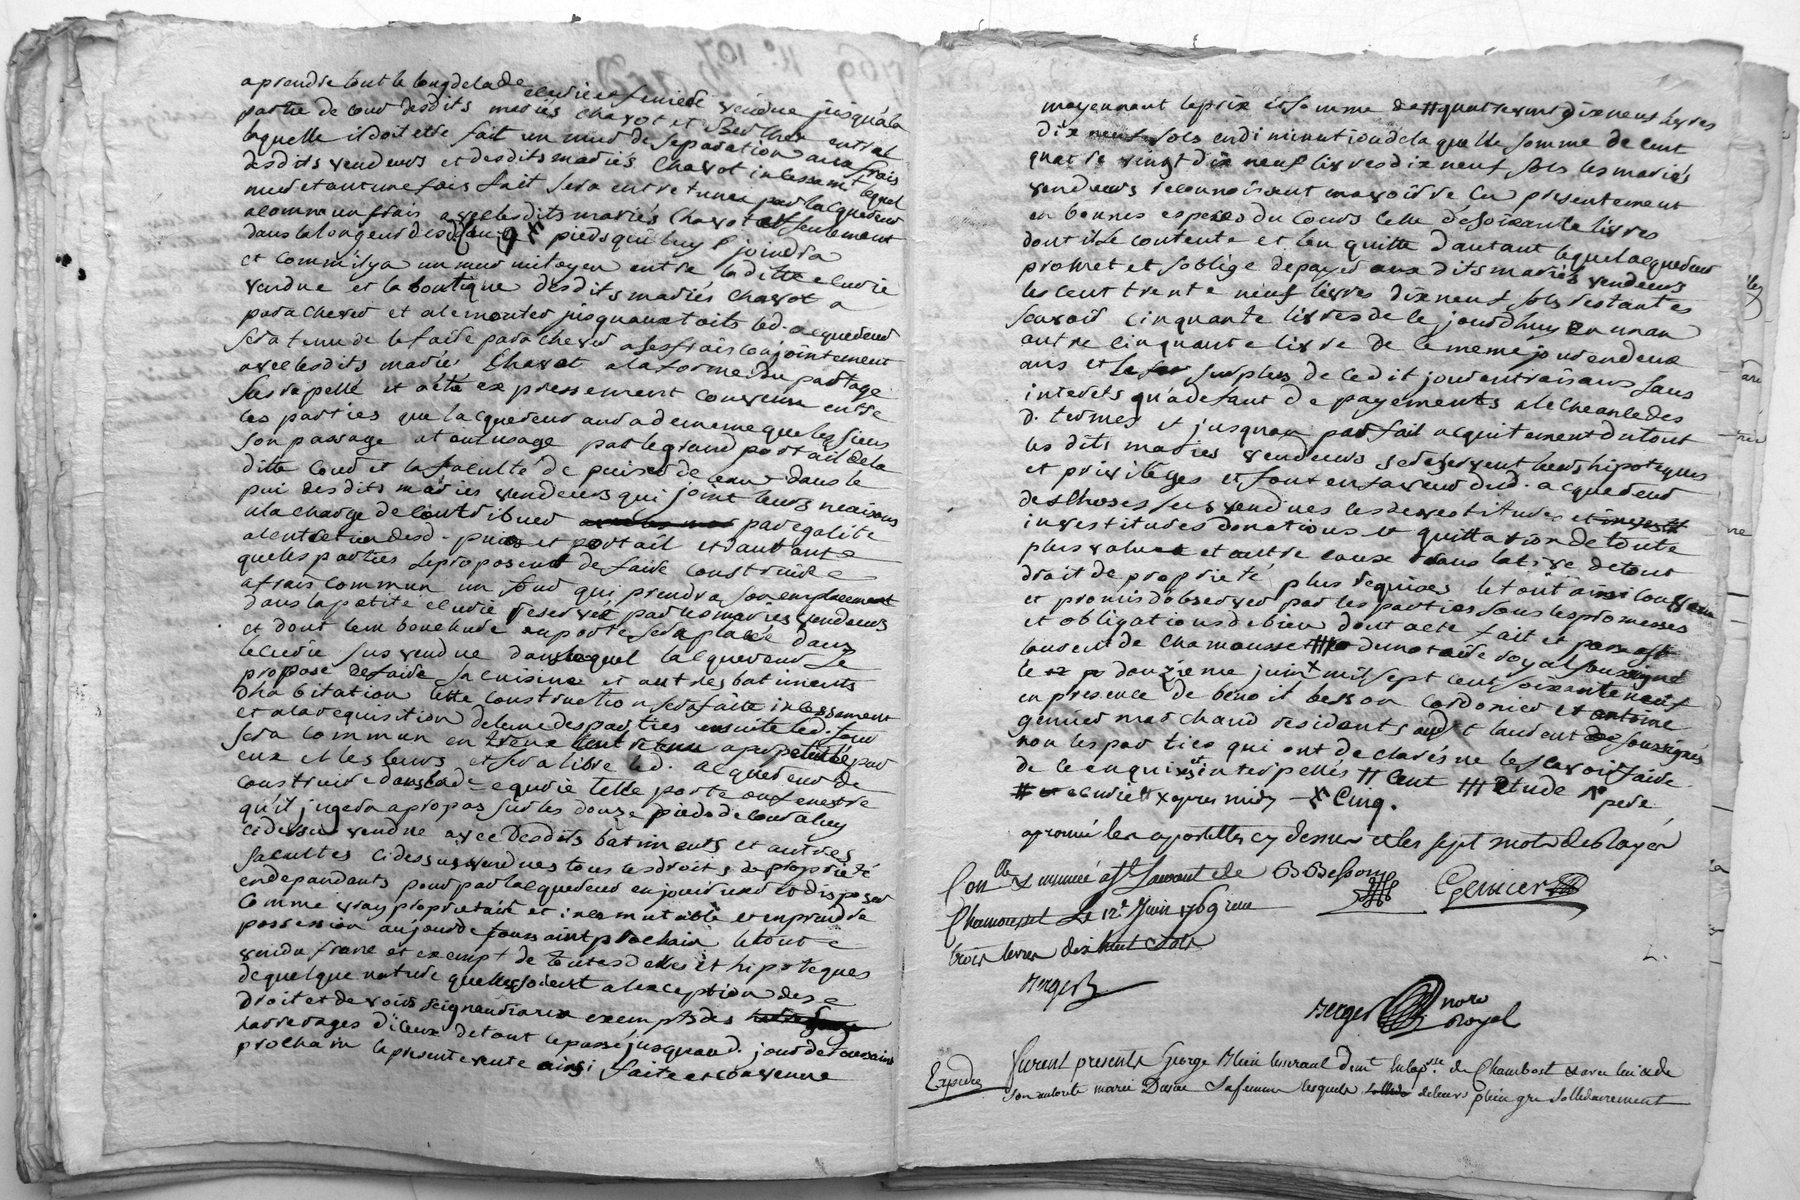 a prendre tout le long de lade ecurie et fenière vendue jusqua la
partie de cour desdits mariés chavot et Berthet entre
laquelle il doit etre fait un mur de separation aux frais
desdits vendeurs et desdits mariés Chavot incessamt lequel
mur et aune fois fait sera entretenu par lacquereur
a commun frais avec lesdits mariés chavot et seulement
dans la longeur desd. pieds qui luy joindra
et comm ilya un mur mitoyen entre la ditte ecurie
vendue et la boutique desdits mariés chavot a
parachever et a remonter jusquaux toits led. acquereur
sera tenu de le faire parachever a ses frais conjointement
avec lesdits mariés Chavot a la forme du partage
sus rapellé et a été expressement convenu entre
les parties que lacquereur aura de meme que les siens
son passage et tout usage par le grand portail de la
ditte cour et la faculté de puiser de leau dans le
pui desdits mariés vendeurs qui joint leurs maisons
a la charge de contribuer par egalité
a lentretien desd. puis et portail et dautant
que les parties se proposent de faire construire
a frais commun un four qui prendra son emplacement
dans la petite ecurie reservée par les mariés vendeurs
et dont lembouchure en porte sera placée dans
lecurie sus vendue dans lequel lacquereur se
propose de faire sa cuisine et autres batiments
dhabitation cette construction sera faite incessament
et a la requisition de lune des parties ensuite led. four
sera commun entretenu a perpetuité par
eux et les leurs et sera libre led. acquereur de
construire dans lade ecurie telle porte ou fenestre
qu'il jugera a propos sur les douze pieds de cour a luy
cidessus vendue avec desdits batiments et autres
facultés cidessus vendues tous les droits de proprieté
en dependants pour par lacquereur en jouir user et disposer
comme vray proprietaire et incommutable et en prendre
possession au jour de toussaint prochain le tout
vendu franc et exempt de toutes dettes et hipoteques
de quelque nature quelles soient a lexception des
droit et devoirs seigneuriaux exempts des
arrerages diceux de tout le passé jusquau d. jour de toussaint
prochain la presente vente ainsi faitte et convenue
moyennant le prix et somme de # quatre vingt dix neuf livres
dix neuf sols en diminution de laquelle somme de cent
quatre vingt dix neuf livres dix neuf sols les mariés
vendeurs reconnoissent mavoir reçu presentement
en bonnes especes du cours celle de soixante livres
dont ils se contente et len quitte dautant lequel acquereur
promet et soblige de payer aux dits mariés vendeurs
les cent trente neuf livres dix neuf sols restantes
scavoir cinquante livres de ce jourdhuy en un an
autre cinquante livre de ce meme jour en deux
ans et le surplus de ce dit jour en trois ans sans
interets qua defaut de payements a lecheance des
d. termes et jusquau parfait acquitement du tout
les dits mariés vendeurs se reservent leurs hipoteques
et privileges et font en faveur dud. acquereur
des choses sus vendues les devestitures et investi
investitures donations et quittation de toute
plus value et autre cause translative de tout
droit de proprieté plus requises le tout ainsi convenu
et promis dobserver par les parties sous les promesses
et obligations de bien dont acte fait et passé a st
laurent de chamousset ### du notaire royal soussigné
le douzieme juin x mil sept cent soixante neuf
en presence de benoit besson cordonier et antoine
genier marchand residents aud. st laurent soussignés
non les parties qui ont declarés ne le scavoir faire
de ce enquises et interpellés # Cent ### Etude
# ecurie x apres midy Cinq.
aprouvé les apostilles cy dessus et les sept mots de rayer
Conlle & insinué a St Laurent de B. Besson Genier
Chamousset Le 12e Juin 1769 reçu
trois livres dix huit sols
Berger
Berger nore
royal
Expedié
Furent presents George Blein
son autorité marie sa femme lesquels de leurs plein gré sollidairement